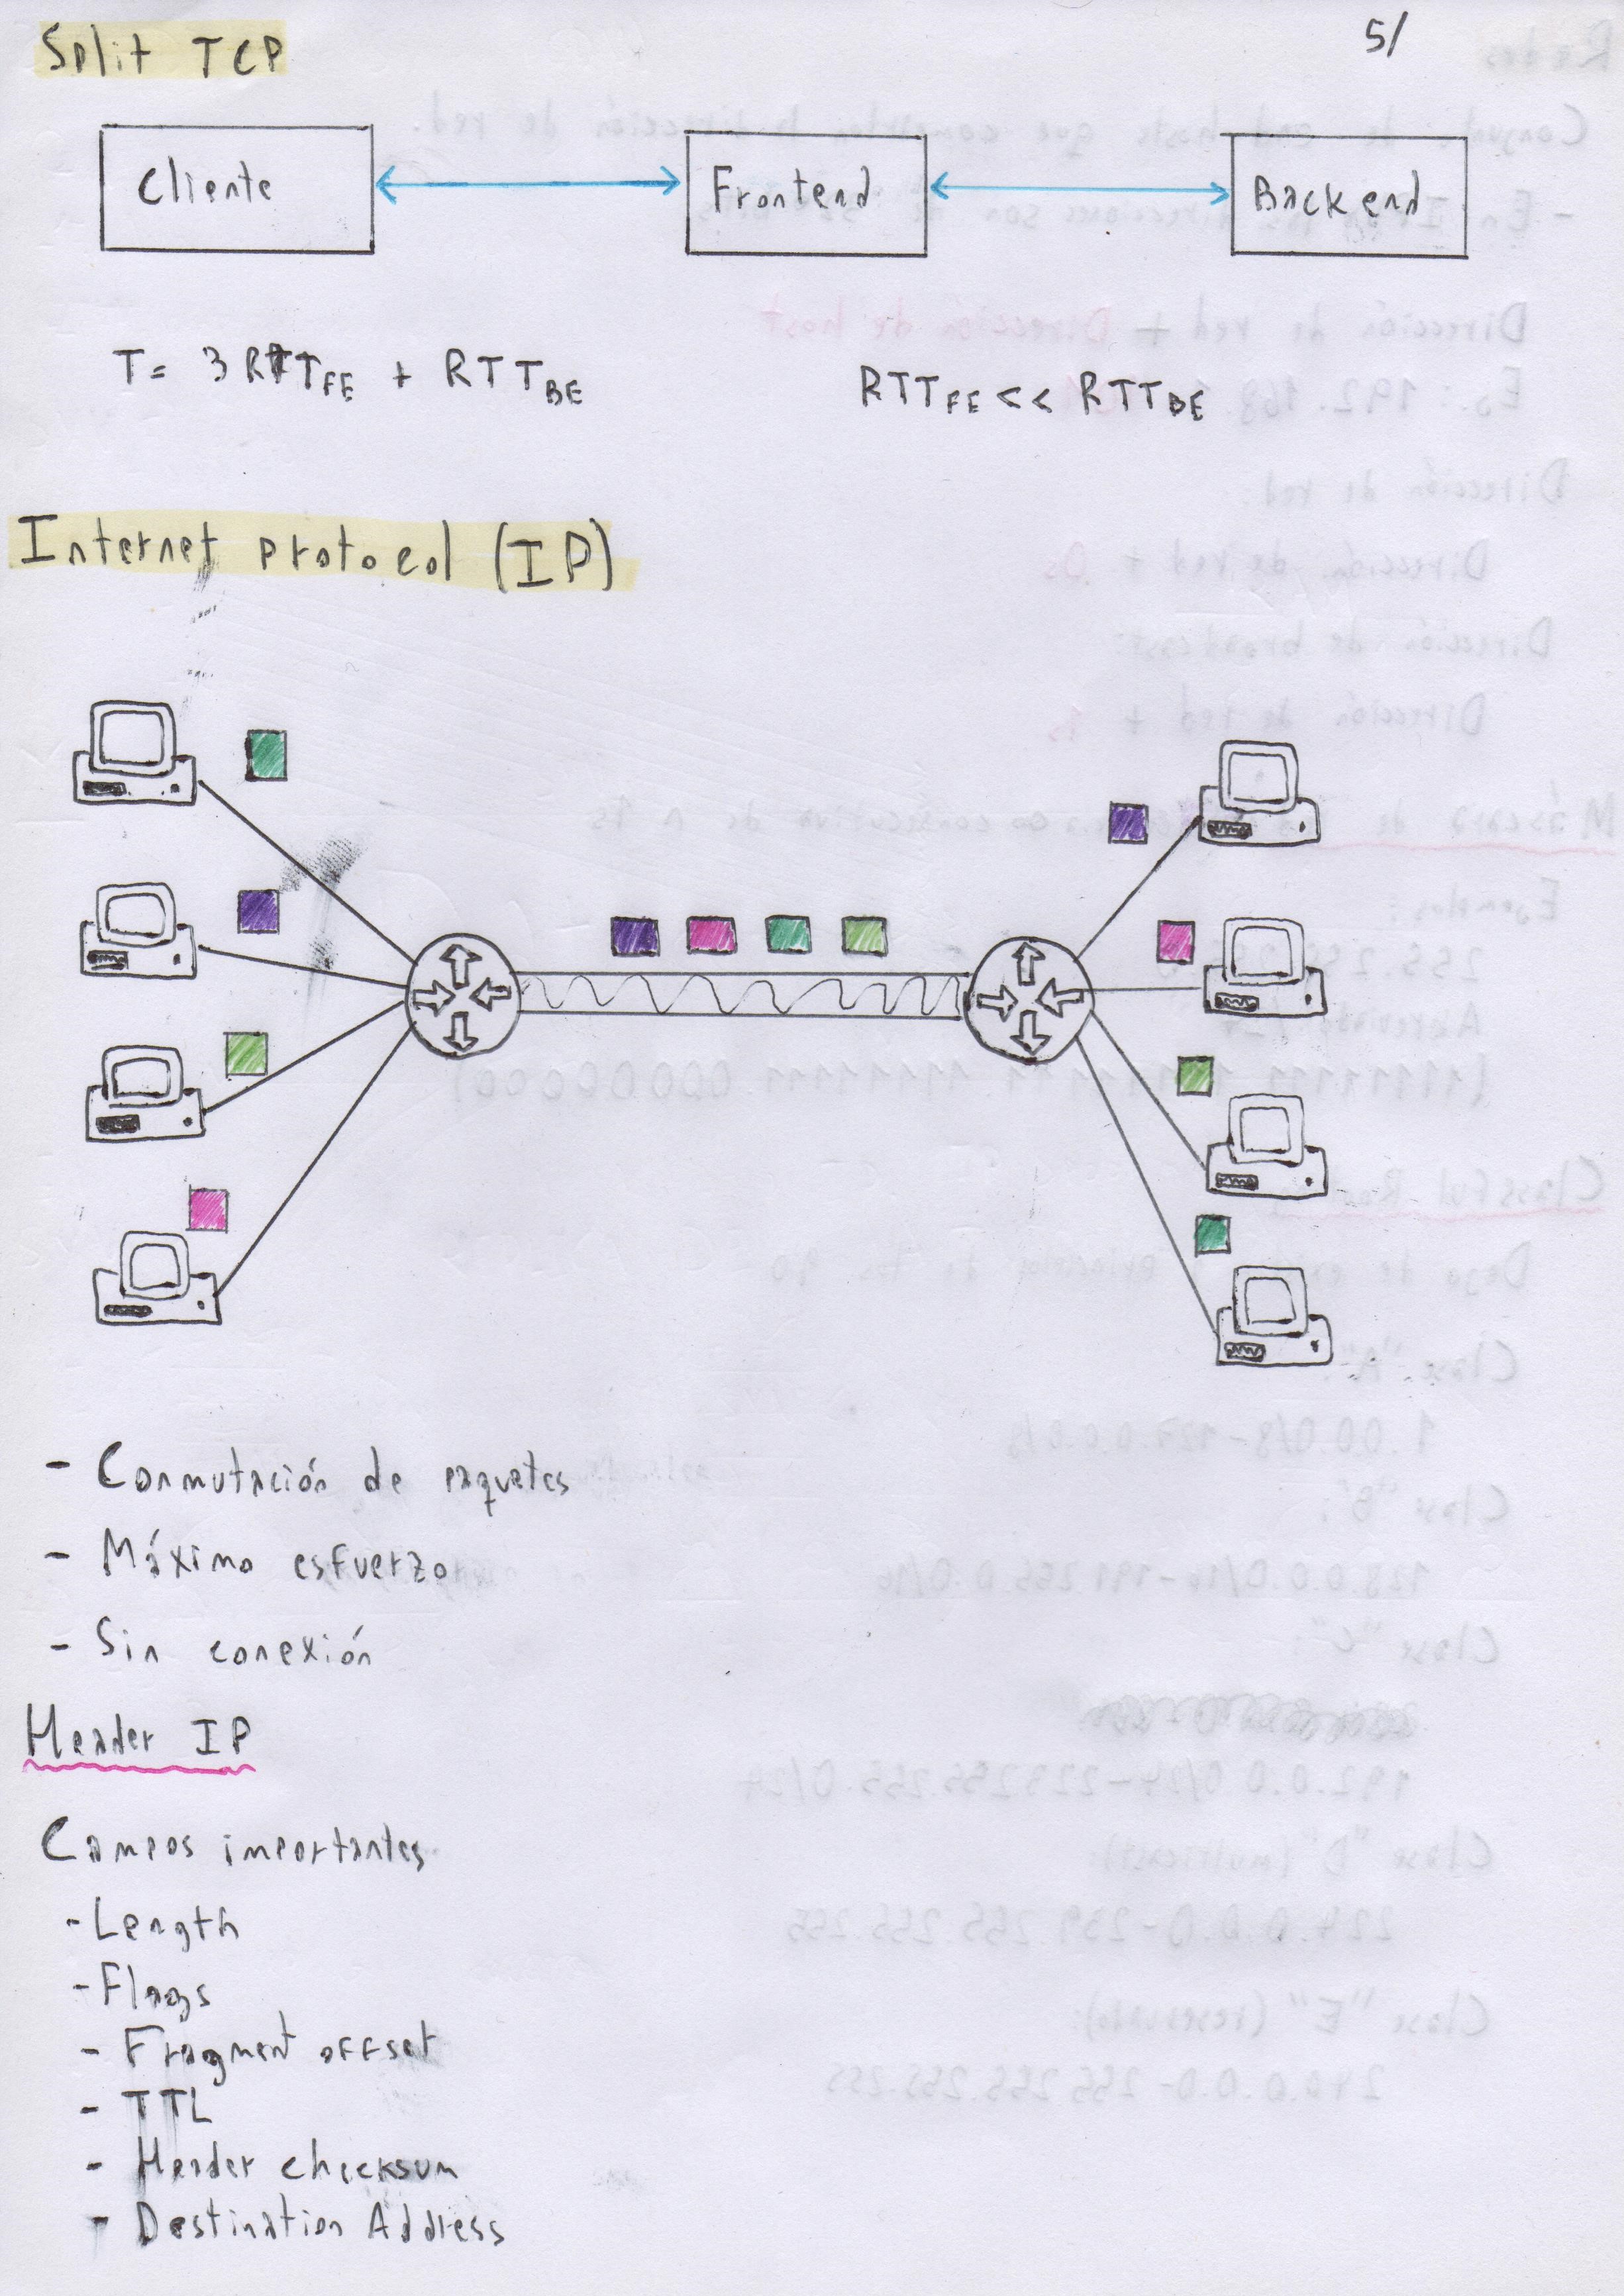 Split TCP
5/
Cliente
Frontend
Backend
T= 3 RTT_FE + RTT_BE
RTT_FE << RTT_BE
Internet protocol (IP)
- Conmutación de paquetes
- Máximo esfuerzo
- Sin conexión
Header IP
Campos importantes
- Length
- Flags
- Fragment offset
- TTL
- Header checksum
- Destination Address